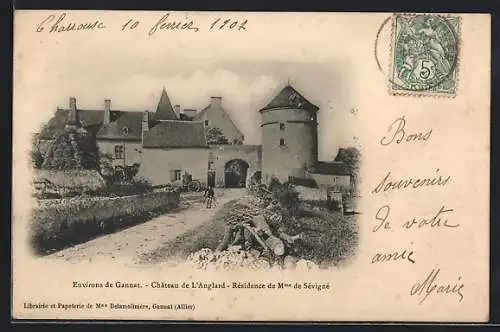 Charrouse 10 février, 1902
5
Bons
souvenirs
de votre
amie
Marie
Environs de Gannat. - Château de L'Anglard - Résidence de Mme de Sévigné
Librairie et Papeterie de Mme Delamolinière, Gannat (Allier)